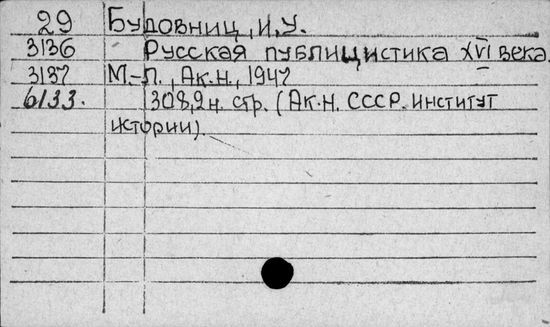 29 Будовниц, И.У.
3136 Русская публицистика XVI века.
3137 М.-Л., Ак.н., 1947
6133. 308,2н. стр. (Ак.н. СССР. институт
истории).